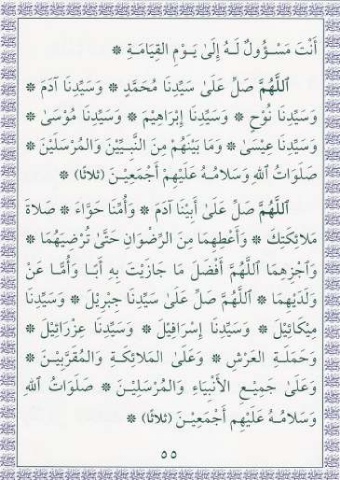 أَنْتَ مَسْؤُولٌ لَهُ إِلَىٰ يَوْمِ القِيَامَةِ ❊
ٱللَّهُمَّ صَلِّ عَلَىٰ سَيِّدِنَا مُحَمَّدٍ ❊ وَسَيِّدِنَا آدَمَ ❊
وَسَيِّدِنَا نُوْحٍ ❊ وَسَيِّدِنَا إِبْرَاهِيْمَ ❊ وَسَيِّدِنَا مُوْسَىٰ ❊
وَسَيِّدِنَا عِيْسَىٰ ❊ وَمَا بَيْنَهُمْ مِنَ النَّبِيِّيْنَ وَالمُرْسَلِيْنَ ❊
صَلَوَاتُ ٱللهِ وَسَلَامُهُ عَلَيْهِمْ أَجْمَعِيْنَ (ثلاثًا) ❊
ٱللَّهُمَّ صَلِّ عَلَىٰ أَبِيْنَا آدَمَ ❊ وَأُمِّنَا حَوَّاءَ ❊ صَلَاةَ
مَلَائِكَتِكَ ❊ وَأَعْطِهِمَا مِنَ الرِّضْوَانِ حَتَّىٰ تُرْضِيَهُمَا ❊
وَٱجْزِهِمَا ٱللَّهُمَّ أَفْضَلَ مَا جَازَيْتَ بِهِ أَبًا وَأُمًّا عَنْ
وَلَدَيْهِمَا ❊ ٱللَّهُمَّ صَلِّ عَلَىٰ سَيِّدِنَا جِبْرِيْلَ ❊ وَسَيِّدِنَا
مِيْكَائِيْلَ ❊ وَسَيِّدِنَا إِسْرَافِيْلَ ❊ وَسَيِّدِنَا عِزْرَائِيْلَ ❊
وَحَمَلَةِ العَرْشِ ❊ وَعَلَىٰ المَلَائِكَةِ وَالمُقَرَّبِيْنَ ❊
وَعَلَىٰ جَمِيْعِ الأَنْبِيَاءِ وَالمُرْسَلِيْنَ ❊ صَلَوَاتُ ٱللهِ
وَسَلَامُهُ عَلَيْهِم أَجْمَعِيْنَ (ثلاثًا) ❊
٥٥